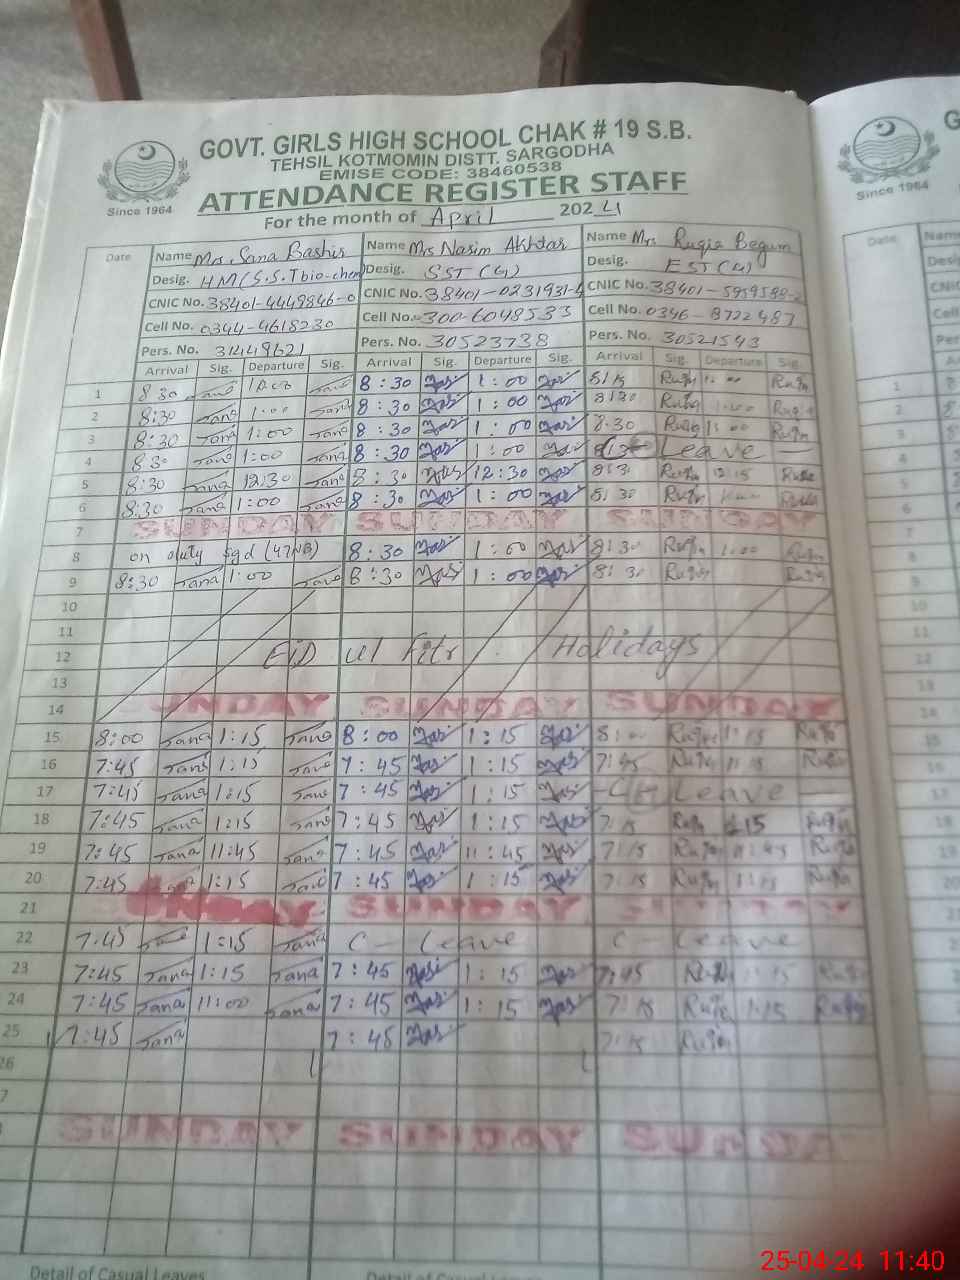 GOVT. GIRLS HIGH SCHOOL CHAK # 19 S.B.
TEHSIL KOTMOMIN DISTT. SARGODHA
EMISE CODE: 38460538
ATTENDANCE REGISTER STAFF
Since 1964
Since 1964
For the month of April 2024
Date Name Mrs Sana Bashir Name Mrs Nasim Akhtar Name Mrs. Ruqia Begum
Desig. HM (S.S.T bio-chem) Desig. SST (G) Desig. EST (G)
CNIC No. 38401-4449846-0 CNIC No. 38401-0231931-4 CNIC No. 38401-5959588-2
Cell No. 0344-4618230 Cell No. 300-6048533 Cell No. 0346-8722487
Pers. No. 31449621 Pers. No. 30523738 Pers. No. 30521543
Arrival Sig. Departure Sig. Arrival Sig. Departure Sig. Arrival Sig. Departure Sig.
1 8:30 Sana Sana 8:30 1:00 Ruqia Ruqia
2 8:30 Sana 1:00 Sana 8:30 1:00 8:30 Ruqia 1:00 Ruqia
3 8:30 Sana 1:00 Sana 8:30 1:00 8:30 Ruqia 1:00 Ruqia
4 8:30 Sana 1:00 Sana 8:30 1:00 Leave
5 8:30 Sana 12:30 Sana 8:30 12:30 8:30 Ruqia 12:15 Ruqia
6 8:30 Sana 1:00 Sana 8:30 1:00 8:30 Ruqia Ruqia
7 SUNDAY SUNDAY SUNDAY
8 on duty sgd (47NB) 8:30 1:00 8:30 Ruqia 1:00 Ruqia
9 8:30 Sana 1:00 Sana 8:30 1:00 8:30 Ruqia Ruqia
10
11
12 EID ul Fitr Holidays
13
14 SUNDAY SUNDAY SUNDAY
15 8:00 Sana 1:15 Sana 8:00 1:15 8:00 Ruqia 1:15 Ruqia
16 7:45 Sana 1:15 Sana 7:45 1:15 7:45 Ruqia 1:15 Ruqia
17 7:45 Sana 1:15 Sana 7:45 1:15 Leave
18 7:45 Sana 1:15 Sana 7:45 1:15 Ruqia 1:15 Ruqia
19 7:45 Sana 11:45 Sana 7:45 11:45 Ruqia 11:45 Ruqia
20 7:45 1:15 Sana 7:45 1:15 Ruqia 1:15 Ruqia
21 SUNDAY SUNDAY SUNDAY
22 7:45 Sana 1:15 Sana C - Leave C - Leave
23 7:45 Sana 1:15 Sana 7:45 1:15 7:45 Ruqia 1:15 Ruqia
24 7:45 Sana 11:00 Sana 7:45 1:15 Ruqia 1:15 Ruqia
25 7:45 Sana 7:45 Ruqia
26
SUNDAY SUNDAY SUNDA
Detail of Casual Leaves
25-04-24 11:40